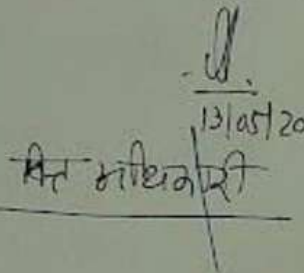 13/05/20
वित्त अधिकारी